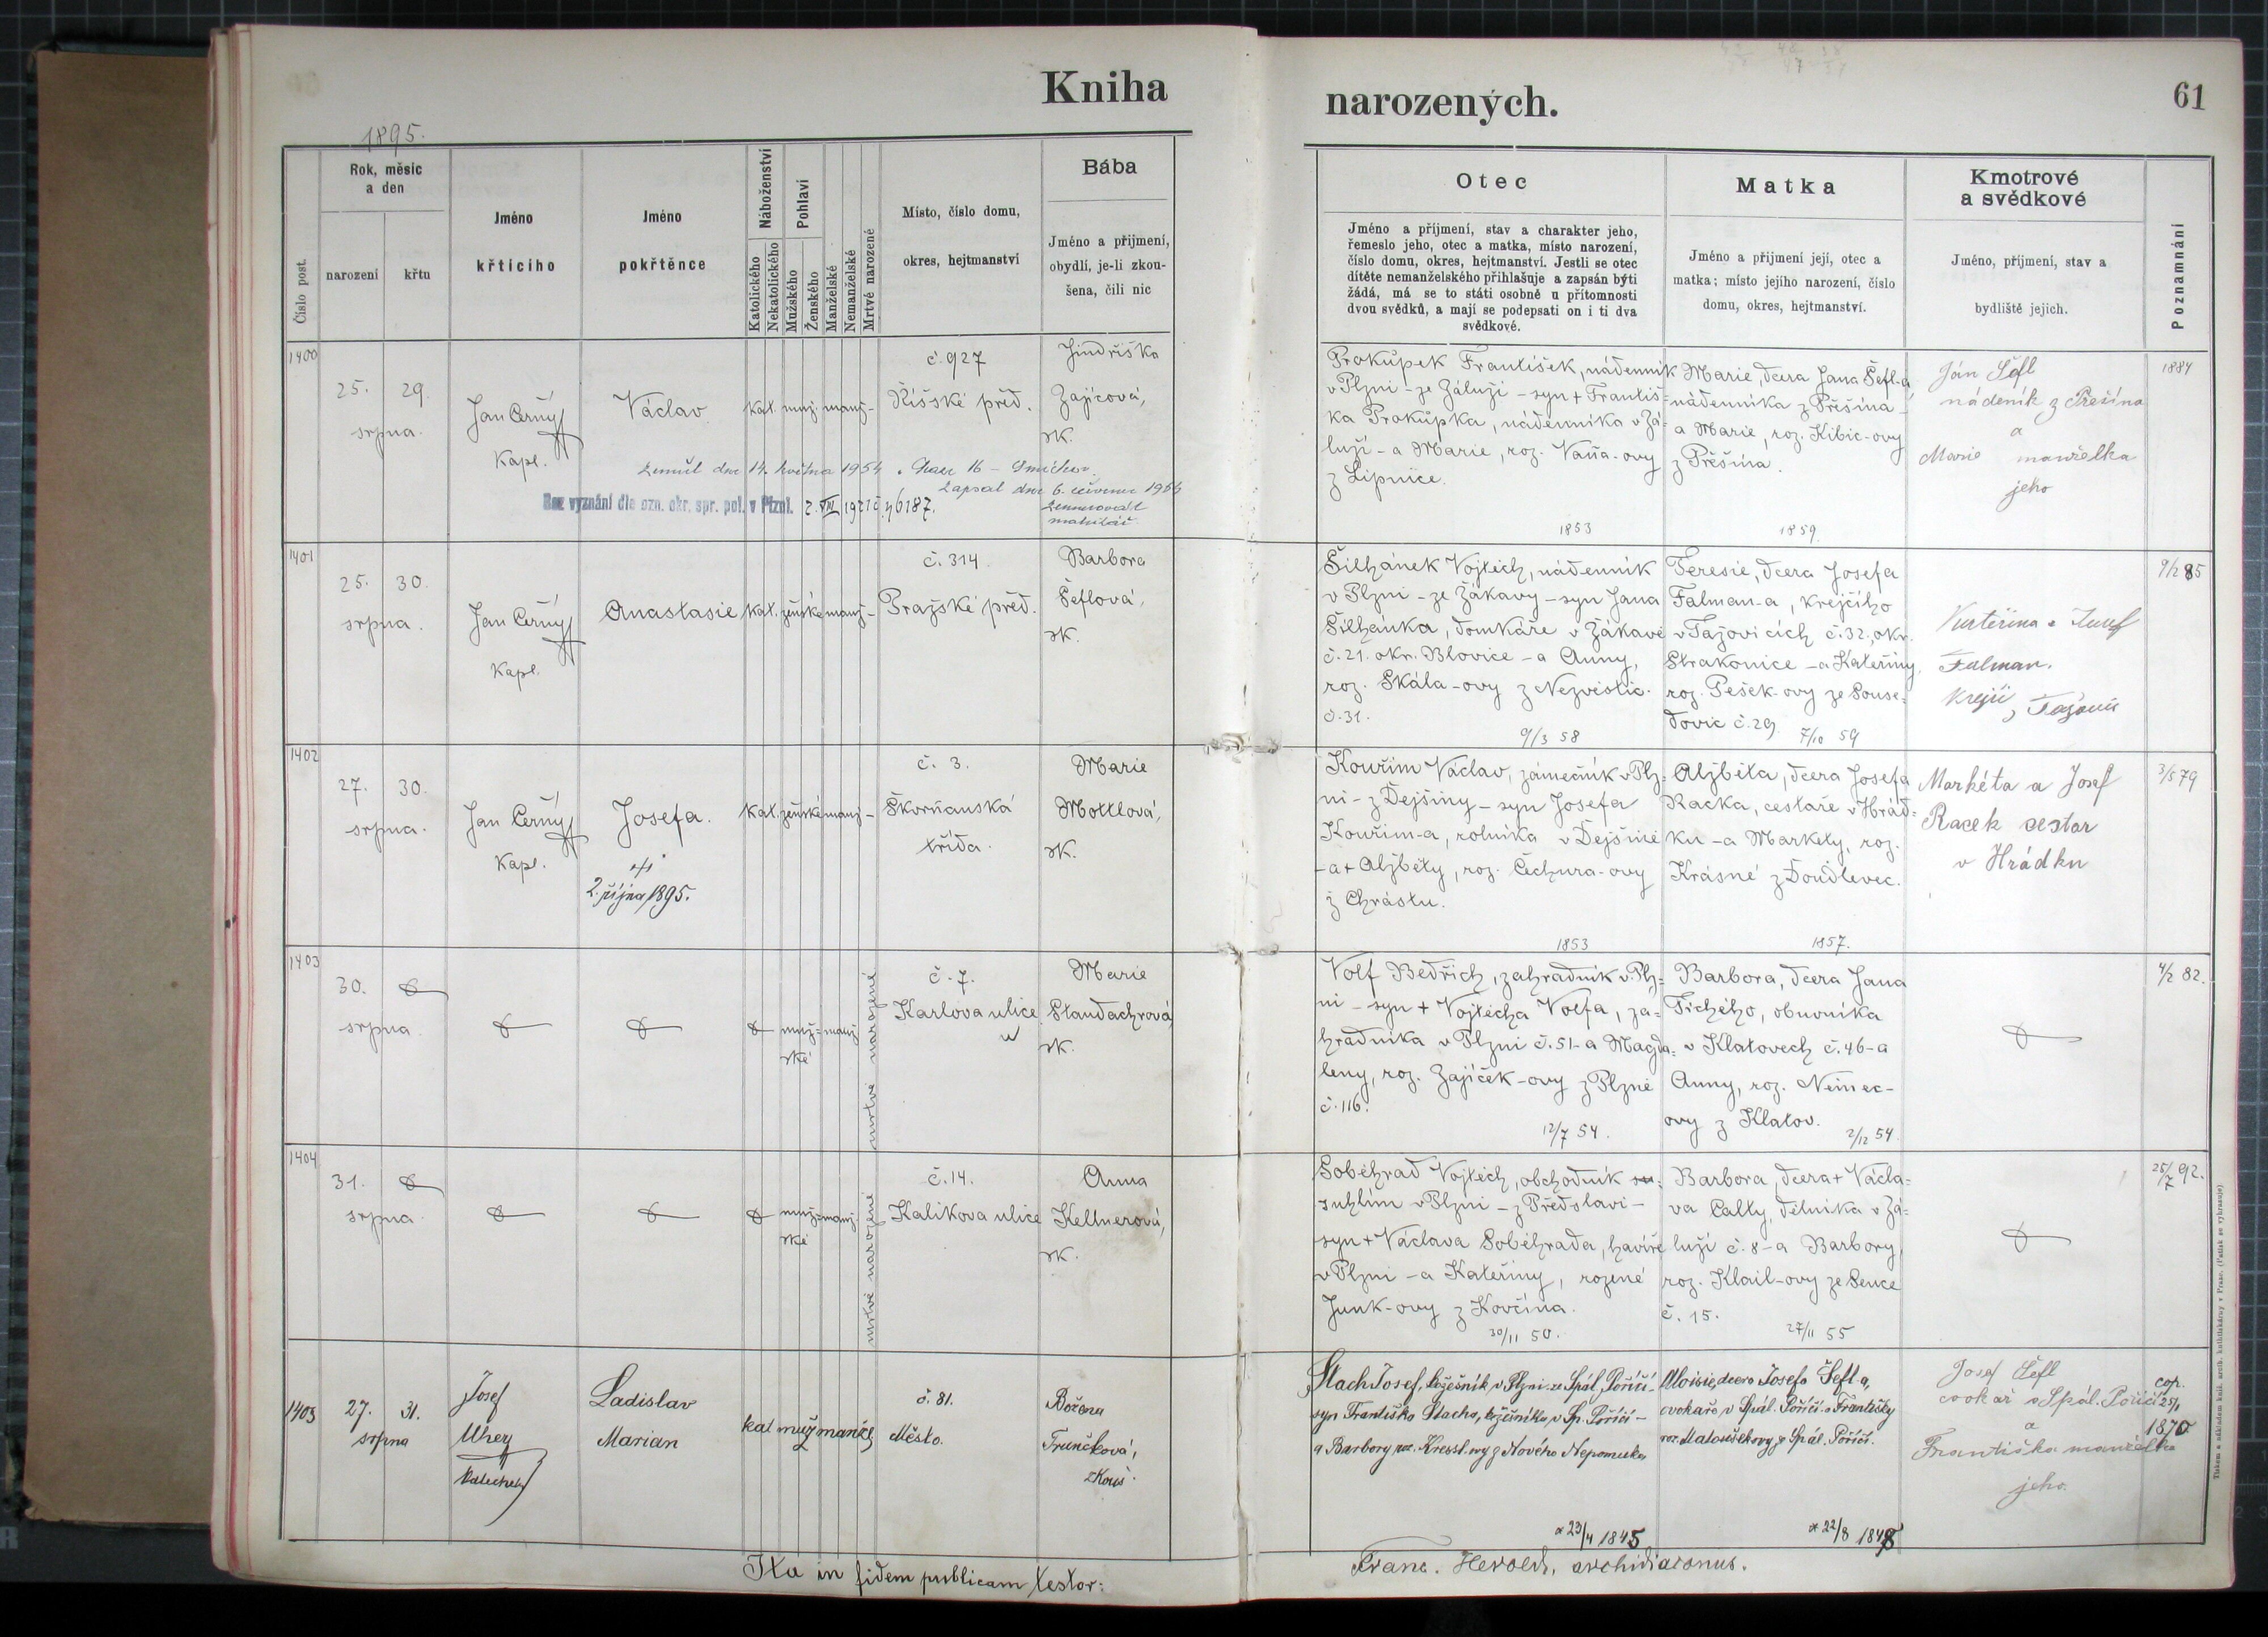 Kniha
narozených.
61
1895.
Číslo post.
Rok, měsíc
a den
narození
křtu
Jméno
křtícího
Jméno
pokřtěnce
Náboženství
Katolického
Nekatolického
Pohlaví
Mužského
Ženského
Manželské
Nemanželské
Mrtvě narozené
Místo, číslo domu,
okres, hejtmanství
Bába
Jméno a přijmení,
obydlí, je-li zkou-
šena, čili nic
Otec
Jméno a příjmení, stav a charakter jeho,
řemeslo jeho, otec a matka, místo narození,
číslo domu, okres, hejtmanství. Jestli se otec
dítěte nemanželského přihlašuje a zapsán býti
žádá, má se to státi osobně u přítomnosti
dvou svědků, a mají se podepsati on i ti dva
svědkové.
Matka
Jméno a přijmení její, otec a
matka; místo jejího narození, číslo
domu, okres, hejtmanství.
Kmotrové
a svědkové
Jméno, příjmení, stav a
bydliště jejich.
Poznamnání
1400
25. 29.
srpna.
Jan Černý
Kapl.
Václav
kat. muž. manž-
č. 927
Říšské před.
Jindřiška
Zajícová,
zk.
zemřel dne 14. května 1954. Praha 16 - Smíchov.
Zapsal dne 6. července 1966
matrikář
Bez vyznání dle ozn. okr. spr. pol. v Plzni. 2. VIII 1921 č. 76187.
Prokůpek František, nádenník
v Plzni - ze Záluží - syn + Františ-
ka Prokůpka, nádenníka v Zá-
luží - a Marie, roz. Vaňa-ovy
z Lipnice.
1853
Marie, dcera Jana Šefl-a,
nádenníka z Přešína -
a Marie, roz. Kibic-ovy
z Přešína.
1859.
Ján Šefl
nádeník z Přešína
a
Marie manželka
jeho
1884
1401
25. 30.
srpna.
Jan Černý
Kapl.
Anastasie
kat. ženské manž-
č. 314
Pražské před.
Barbora
Šeflová,
zk.
Šilhánek Vojtěch, nádenník
v Plzni - ze Žákavy - syn Jana
Šilhánka, domkáře v Žákavě
č. 21. okr. Blovice - a Anny,
roz. Skála-ovy z Nezvěstic.
č. 31.
9/3 58
Teresie, dcera Josefa
Falman-a, krejčího
v Tažovicích č. 32., okr.
Strakonice - a Kateřiny,
roz. Pešek-ovy ze Souse-
dovic č. 29.
7/10 59
Kateřina a Josef
Falman.
krejčí, Tažovic
9/2 85
1402
27. 30.
srpna.
Jan Černý
Kapl.
Josefa.
2. října 1895.
kat. ženské manž-
č. 3.
Škorňanská
třída.
Marie
Mottlová,
zk.
Kouřim Václav, zámečník v Plz-
ni - z Dejšiny - syn Josefa
Kouřim-a, rolníka v Dejšině
- a + Alžběty, roz. Čechura-ovy
z Chrástu.
1853
Alžběta, dcera Josefa
Racka, cestaře v Hrád-
ku - a Markéty, roz.
Krásné z Doudlevec.
1857.
Markéta a Josef
Racek cestar
v Hrádku
3/5 79
1403
30.
srpna.
muž-
ské
manž.
mrtvě narozené
č. 7.
Karlova ulice
Marie
Standachrová,
zk.
Volf Bedřich, zahradník v Plz-
ni - syn + Vojtěcha Volfa, za-
hradníka v Plzni č. 51 - a Magda-
leny, roz. Zajíček-ovy z Plzně
č. 116.
12/7 54.
Barbora, dcera Jana
Tichého, obuvníka
v Klatovech č. 46 - a
Anny, roz. Němec-
ovy z Klatov.
2/12 54
4/2 82.
1404
31.
srpna.
muž-
ské
manž.
mrtvě narozené
č. 14.
Kalikova ulice
Anna
Kellnerová,
zk.
Soběhrad Vojtěch, obchodník
s uhlím v Plzni - z Předslavi -
syn + Václava Soběhrada, havíře
v Plzni - a Kateřiny, rozené
Junk-ovy z Kovčína.
30/11 50.
Barbora, dcera + Václa-
va Calty, dělníka v Zá-
luží č. 8 - a Barbory,
roz. Klail-ovy ze Sence
č. 15.
27/11 55
25/7 92.
1405
27. 31.
srpna
Josef
Uher
katecheta
Ladislav
Marian
kat. muž manžel
č. 81.
Město.
Božena
Trunčková,
zkouš.
Stach Josef, kožešník v Plzni - ze Spál. Poříčí -
syn Františka Stacha, kožešníka v Sp. Poříčí -
a Barbory roz. Kressl-ovy z Nového Nepomuka
* 23/4 1845
Aloisie, dcera Josefa Šefla,
cvokaře v Spál. Poříčí a Františky
roz. Matoušekovy ze Spál. Poříčí.
* 22/8 1848
Josef Šefl
cvokař v Spál. Poříčí
a
Františka manželka
jeho.
cop.
25/1
1870
Ita in fidem publicam testor:
Franc. Herold, archidiaconus.
Tiskem a nákladem kníž. arcib. knihtiskárny v Praze. (Patisk se vyhrazuje)